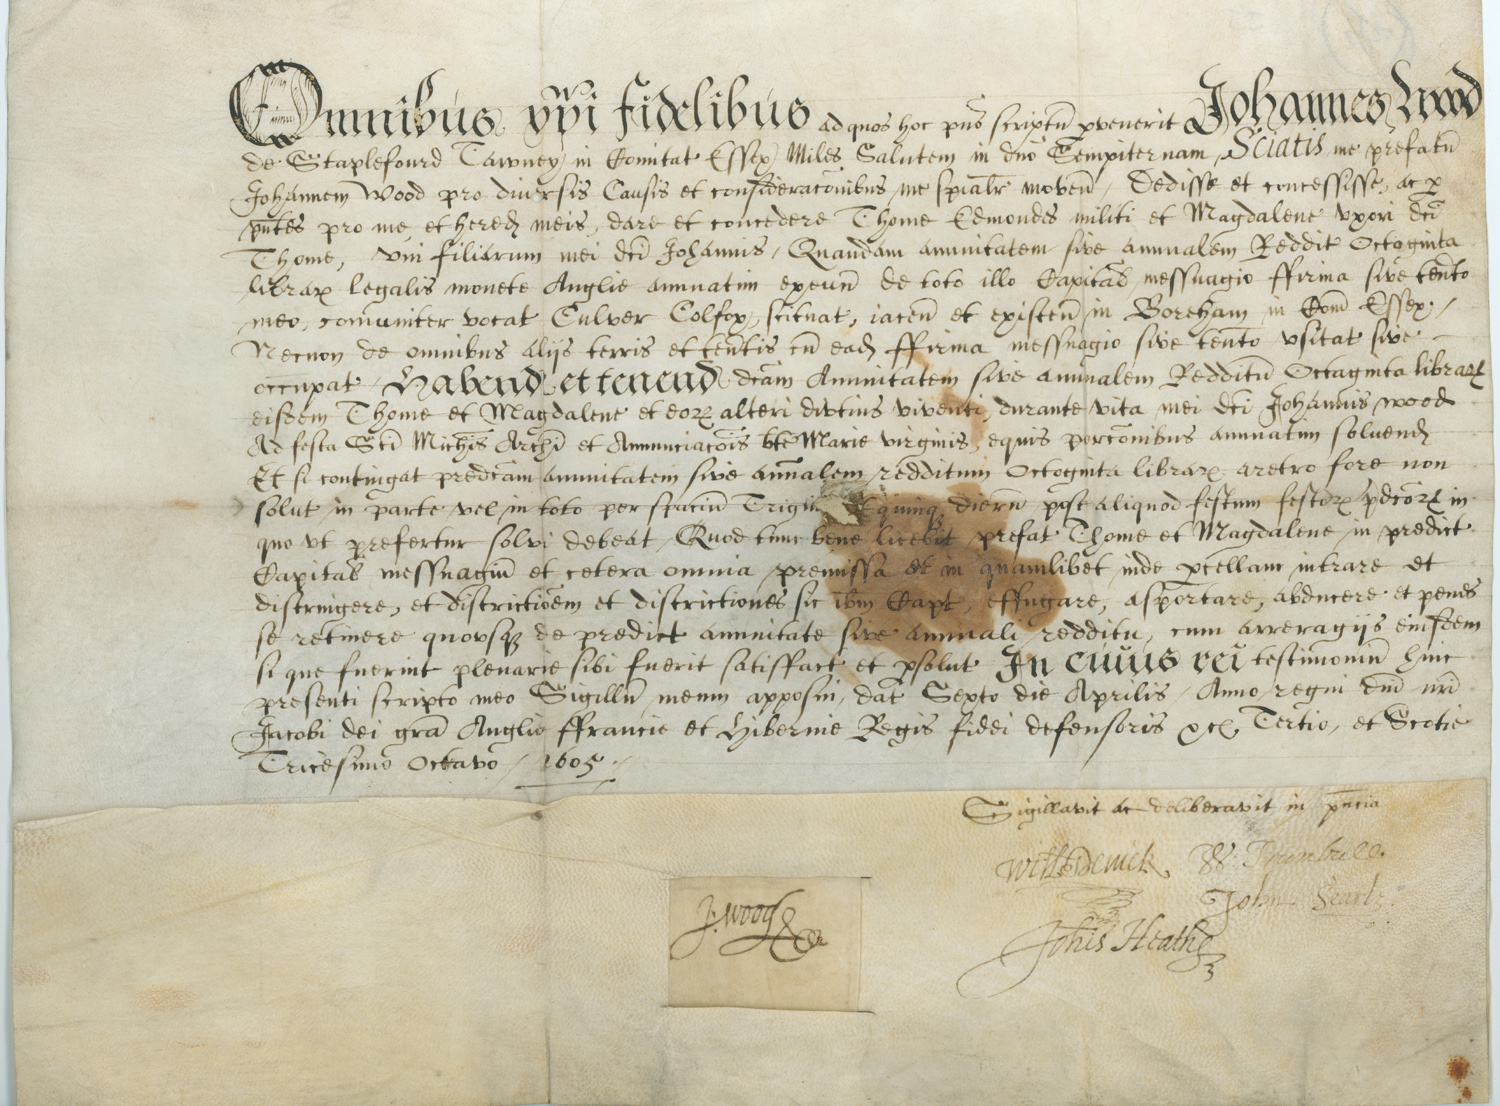 Omnibus xp̄i fidelibus ad quos hoc pn̄s scriptū pvenerit Johannes Wood
de Staplefourd Tawney in Comitat Essex Miles Salutem in dn̄o Sempiternam, Sciatis me prefatū
Johannem Wood pro diversis Causis et consideracōnibus me sp̄ialr̄ moven̄, Dedisse et concessisse, ac p
pn̄tes pro me, et hered meis, dare et concedere Thome Edmondes militi et Magdalene vxori dc̄i
Thome, vni filiarum mei dc̄i Johannis, Quandam annuitatem sive annualem Reddit Octoginta
librar legalis monete Anglie annuatim exeun̄ de toto illo Capitał messuagio ffirma sive ten̄to
meo, comūniter vocat Culver Colfox, scituat, iacen̄ et existen̄ in Boreham in Com̄ Essex,
Necnon de omnibus alijs terris et ten̄tis cū ead ffirma messuagio sive ten̄to vsitat sive
occupat, Habend et tenend dc̄am Annuitatem sive annualem Redditū Octaginta librar
eisdem Thome et Magdalene et eor alteri divtius viventi, durante vita mei dc̄i Johannis Wood
Ad festa Sc̄i Mich̄is Arch̄i et Annunciacōis bt̄e Marie virginis, equis porcōnibus annuatim soluend
Et si contingat predc̄am annuitatem sive annalem redditum Octoginta librar aretro fore non
solut in parte vel in toto per spaciū Trigin quinq dierū post aliquod festum festor pdc̄or in
quo vt prefertur solvi debeat, Quod tunc bene licebit prefat Thome et Magdalene in predict
Capitał messuagiū et cetera omnia premissa et in quamlibet inde pcellam intrare et
distringere, et districtiōem et districtiones sic ib̄m Capt, effugare, asportare, abducere et penes
se retinere quousq de predict annuitate sive annuali redditu, cum arreragijs eiusdem
si que fuerint plenarie sibi fuerit satisffact et psolut In cuius rei testimoniū huic
presenti scripto meo Sigillū meum apposui, dat Sexto die Aprilis, Anno regni dn̄i nr̄i
Jacobi dei grā Anglie ffrancie et Hibernie Regis fidei defensoris &c Tertio, et Scotie
Tricesimo Octavo, 1605.
Sigillavit ac deliberavit in pn̄cia
W: Trumbull.
John Searle
Johis Heathe
J: Wood